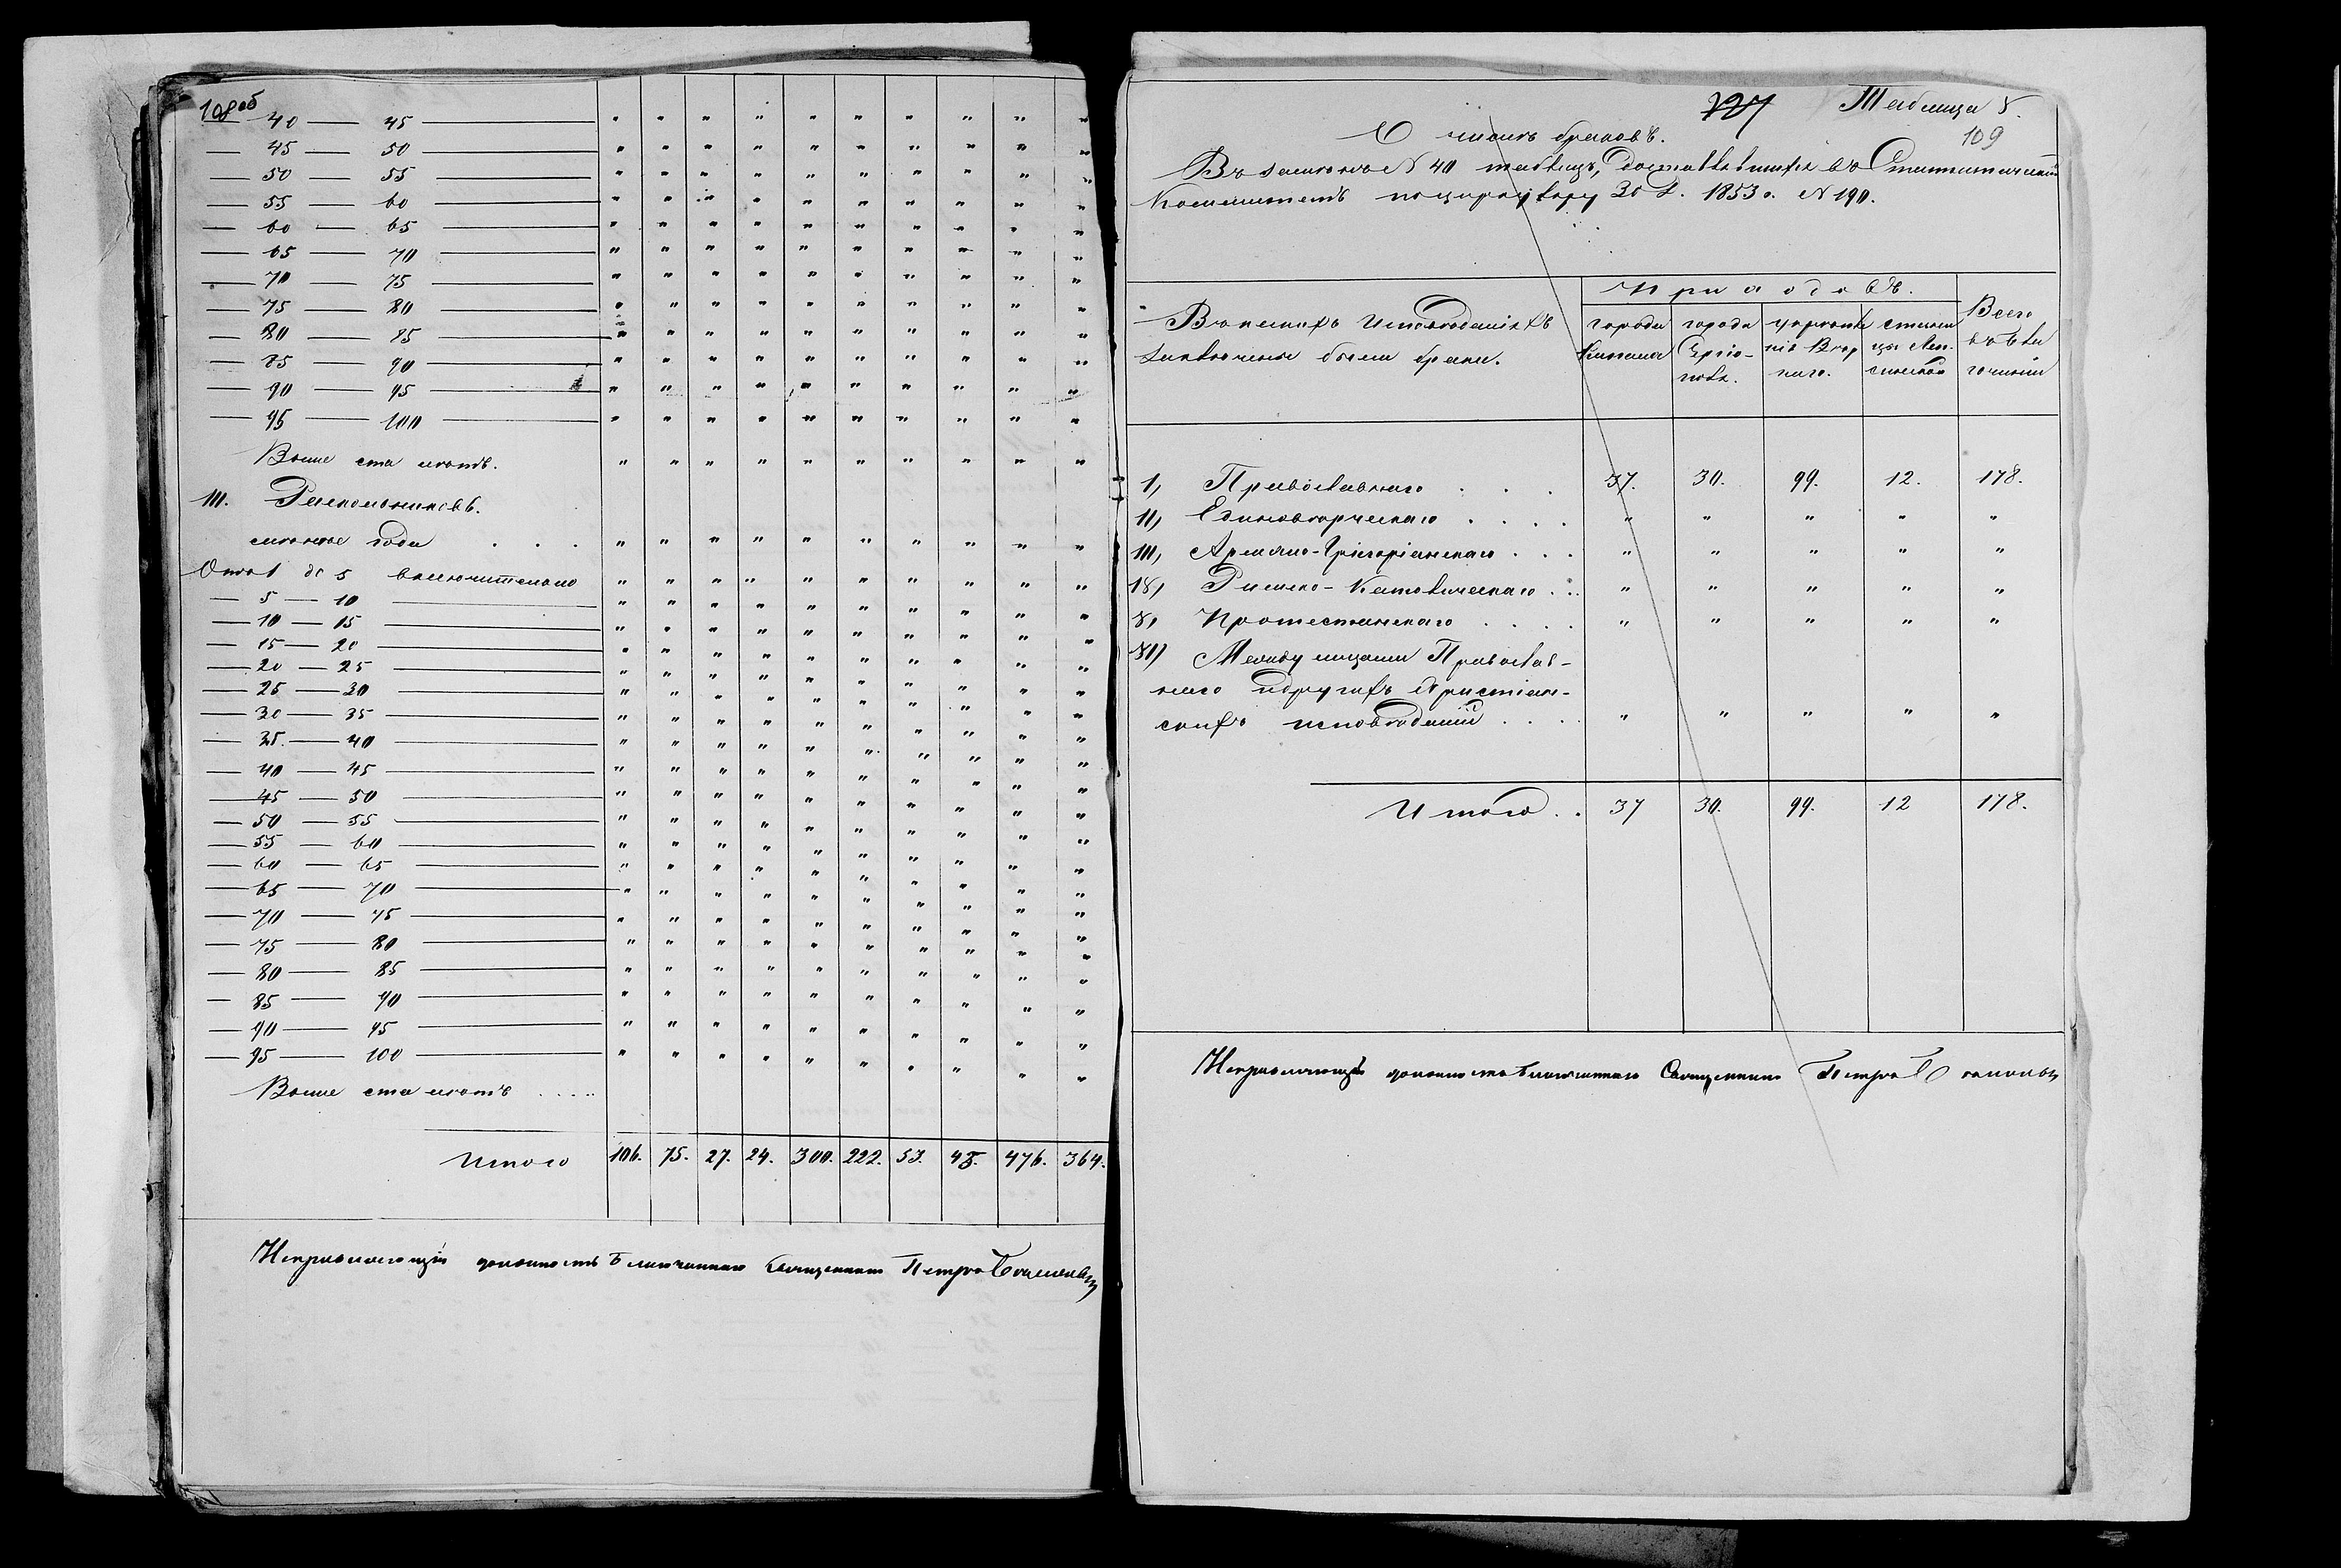 108об
— 40 — 45 — " " " " " " " " " "
— 45 — 50 — " " " " " " " " " "
— 50 — 55 — " " " " " " " " " "
— 55 — 60 — " " " " " " " " " "
— 60 — 65 — " " " " " " " " " "
— 65 — 70 — " " " " " " " " " "
— 70 — 75 — " " " " " " " " " "
— 75 — 80 — " " " " " " " " " "
— 80 — 85 — " " " " " " " " " "
— 85 — 90 — " " " " " " " " " "
— 90 — 95 — " " " " " " " " " "
— 95 — 100 — " " " " " " " " " "
Выше ста лѣтъ. " " " " " " " " " "
III. Раскольниковъ.
менѣе года . . . " " " " " " " " " "
Отъ 1 до 5 включительно " " " " " " " " " "
— 5 — 10 — " " " " " " " " " "
— 10 — 15 — " " " " " " " " " "
— 15 — 20 — " " " " " " " " " "
— 20 — 25 — " " " " " " " " " "
— 25 — 30 — " " " " " " " " " "
— 30 — 35 — " " " " " " " " " "
— 35 — 40 — " " " " " " " " " "
— 40 — 45 — " " " " " " " " " "
— 45 — 50 — " " " " " " " " " "
— 50 — 55 — " " " " " " " " " "
— 55 — 60 — " " " " " " " " " "
— 60 — 65 — " " " " " " " " " "
— 65 — 70 — " " " " " " " " " "
— 70 — 75 — " " " " " " " " " "
— 75 — 80 — " " " " " " " " " "
— 80 — 85 — " " " " " " " " " "
— 85 — 90 — " " " " " " " " " "
— 90 — 95 — " " " " " " " " " "
— 95 — 100 — " " " " " " " " " "
Выше ста лѣтъ . . . .
Итого 106. 75. 27. 24. 300. 222. 53. 43. 476. 364.
Исправляющій должность Благочиннаго Священникъ Петръ
Таблица V.
109
О числѣ браковъ.
Въ замѣнъ N 40 таблицъ, доставлявшихся въ Статистическій
Комитетъ по циркуляру 30 1853 г. N 190.
Приходовъ.
Въ какихъ Исповѣданіяхъ
заключены были браки.
города
города
укрѣпле
нія Вѣр
наго.
станицы
Всего
въ бла
гочиніи
I, Православнаго . . . 37. 30. 99. 12. 178.
II, Единовѣрческаго . . . . " " " " "
III, Армяно-Григоріанскаго . . . " " " " "
IV, Римско-Католическаго . . . " " " " "
V, Протестанскаго . . . . " " " " "
VI) Между лицами Православ-
наго и другихъ Христіан-
скихъ исповѣданій . . . . " " " " "
Итого . . 37 30. 99. 12 178.
Исправляющій должность Благочиннаго Священникъ Петръ